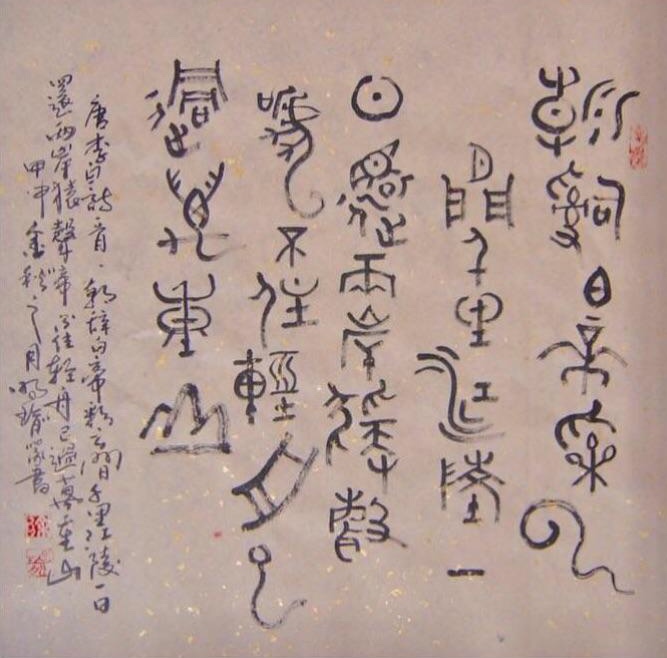 朝辭白帝彩云
間千里江陵一
日還兩岸猿聲
啼不住輕舟已
過萬重山
唐李白詩首朝辭白帝彩云間千里江陵一日
還两岸猿聲啼不住輕舟已過萬重山
甲申金秋之月篆書